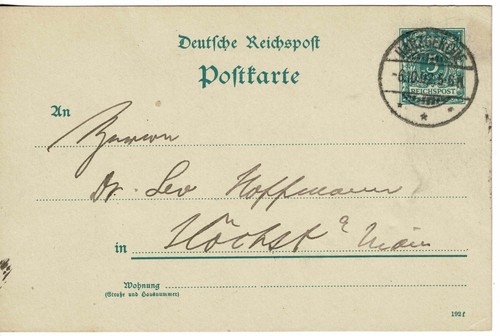 Deutsche Reichspost
Postkarte
HARZGERODE
5
6.10.92.5-6N
REICHSPOST
An
Herrn
Dr. Leo Hoffmann
in Höchst a Main
Wohnung
(Straße und Hausnummer)
192 f